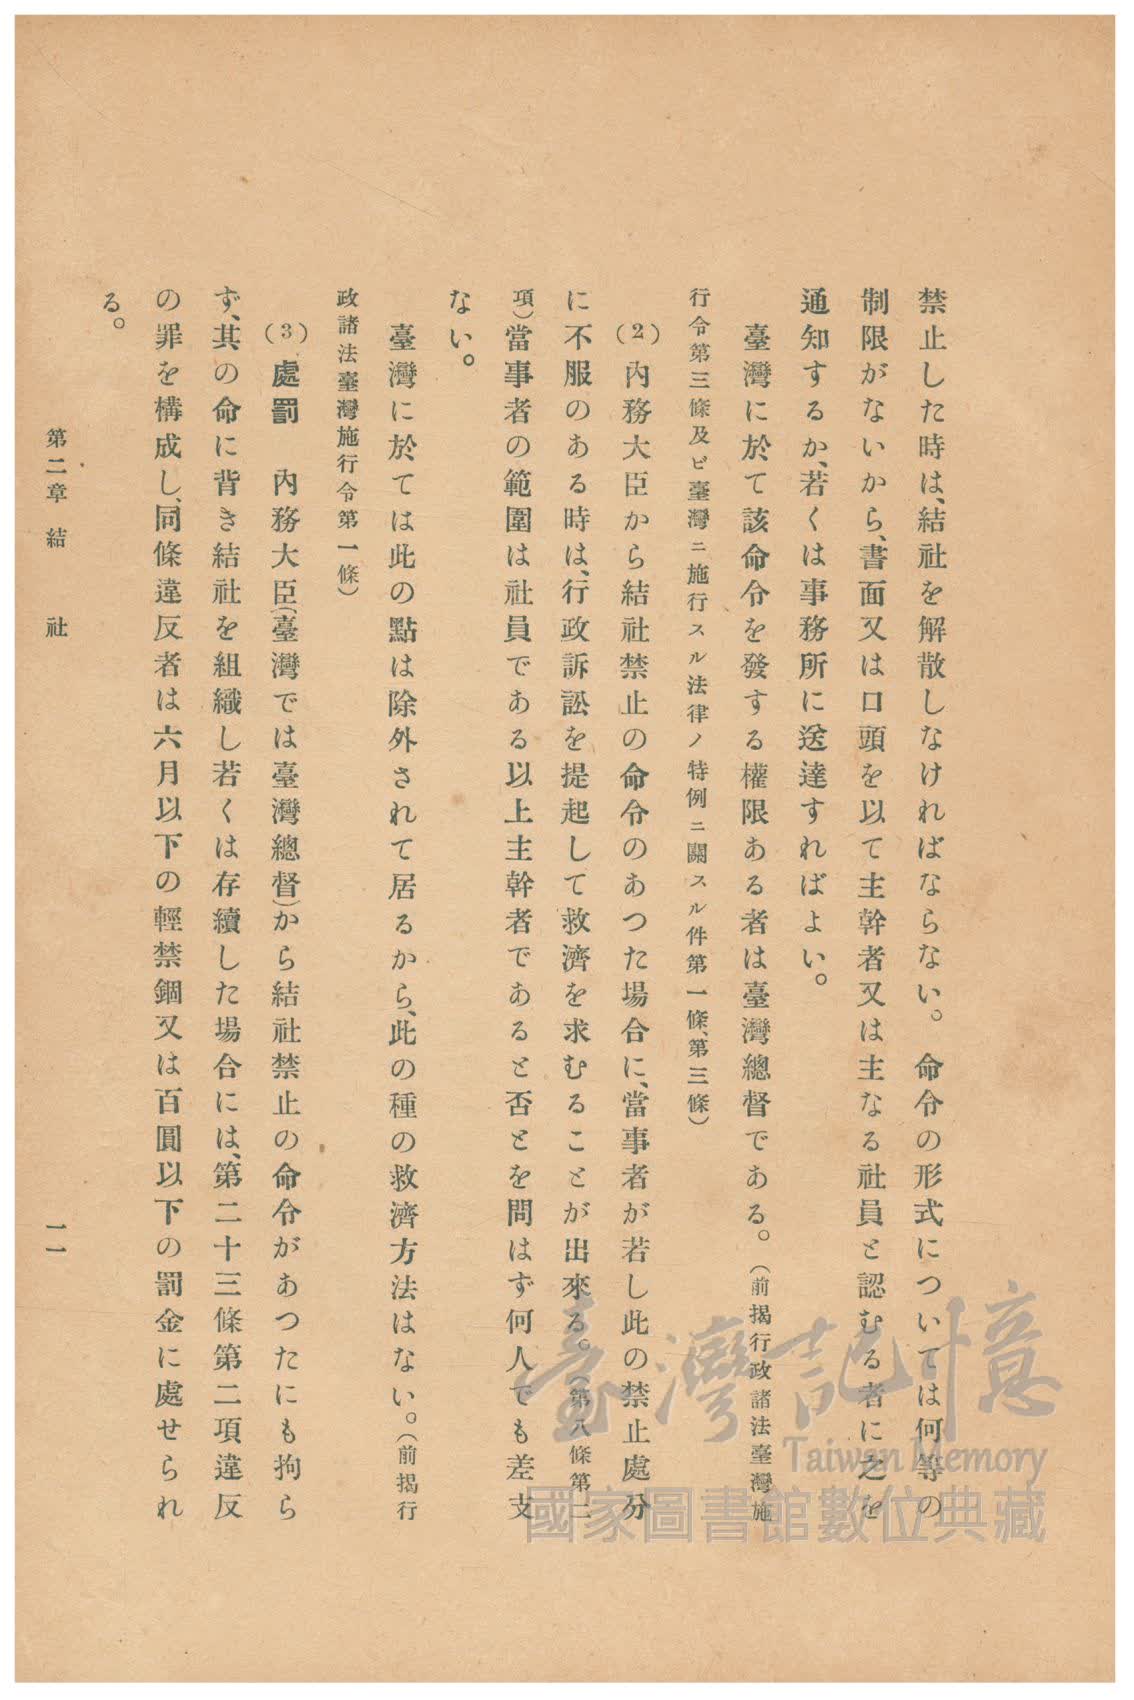 禁止した時は、結社を解散しなければならない。命令の形式については何等の
制限がないから、書面又は口頭を以て主幹者又は主なる社員と認むる者に之を
通知するか、若くは事務所に送達すればよい。
臺灣に於て該命令を發する權限ある者は臺灣總督である。（前揭行政諸法臺灣施
行令第三條及ビ臺灣ニ施行スル法律ノ特例ニ關スル件第一條、第三條）
（2）內務大臣から結社禁止の命令のあつた場合に、當事者が若し此の禁止處分
に不服のある時は、行政訴訟を提起して救濟を求むることが出來る。（第八條第二
項）當事者の範圍は社員である以上主幹者であると否とを問はず何人でも差支
ない。
臺灣に於ては此の點は除外されて居るから、此の種の救濟方法はない。（前揭行
政諸法臺灣施行令第一條）
（3）處罰　內務大臣（臺灣では臺灣總督）から結社禁止の命令があつたにも拘ら
ず、其の命に背き結社を組織し若くは存續した場合には、第二十三條第二項違反
の罪を構成し、同條違反者は六月以下の輕禁錮又は百圓以下の罰金に處せられ
る。
第二章　結　社
一一
臺灣記憶
Taiwan Memory
國家圖書館數位典藏